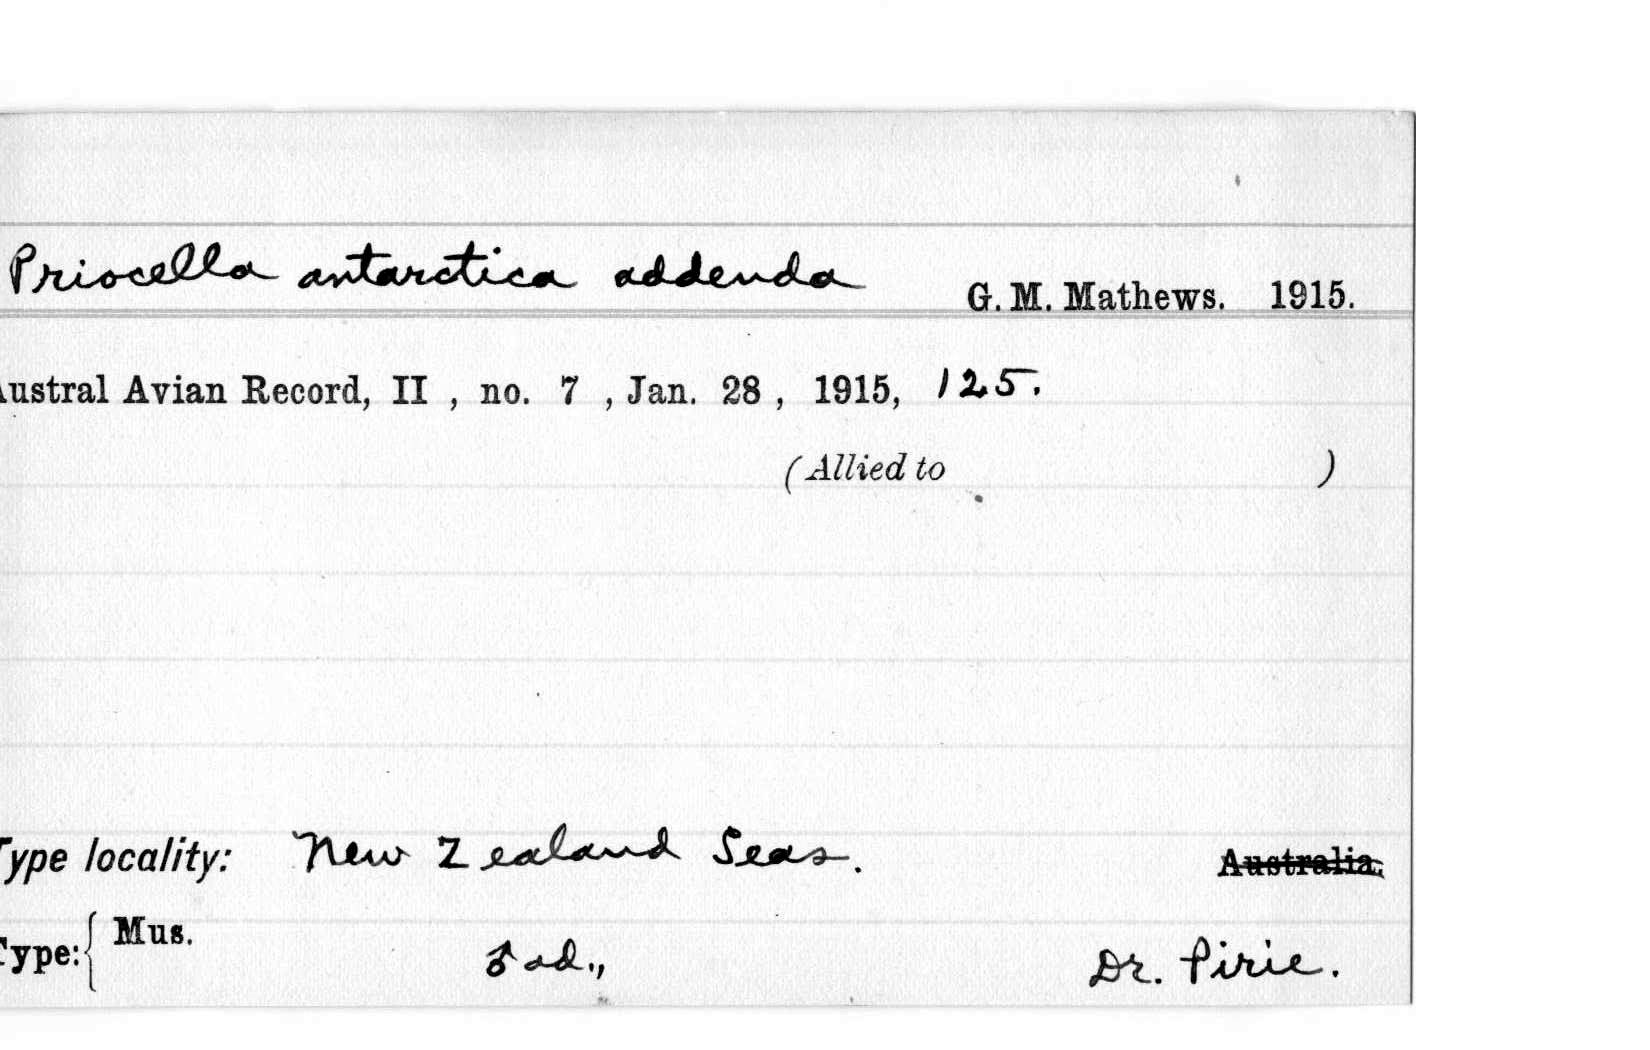 Priocella antarctica addenda G. M. Mathews. 1915.
Austral Avian Record, II , no. 7 , Jan. 28 , 1915, 125.
(Allied to )
Type locality: New Zealand Seas. Australia.
Type: { Mus. ♂ ad., Dr. Pirie.